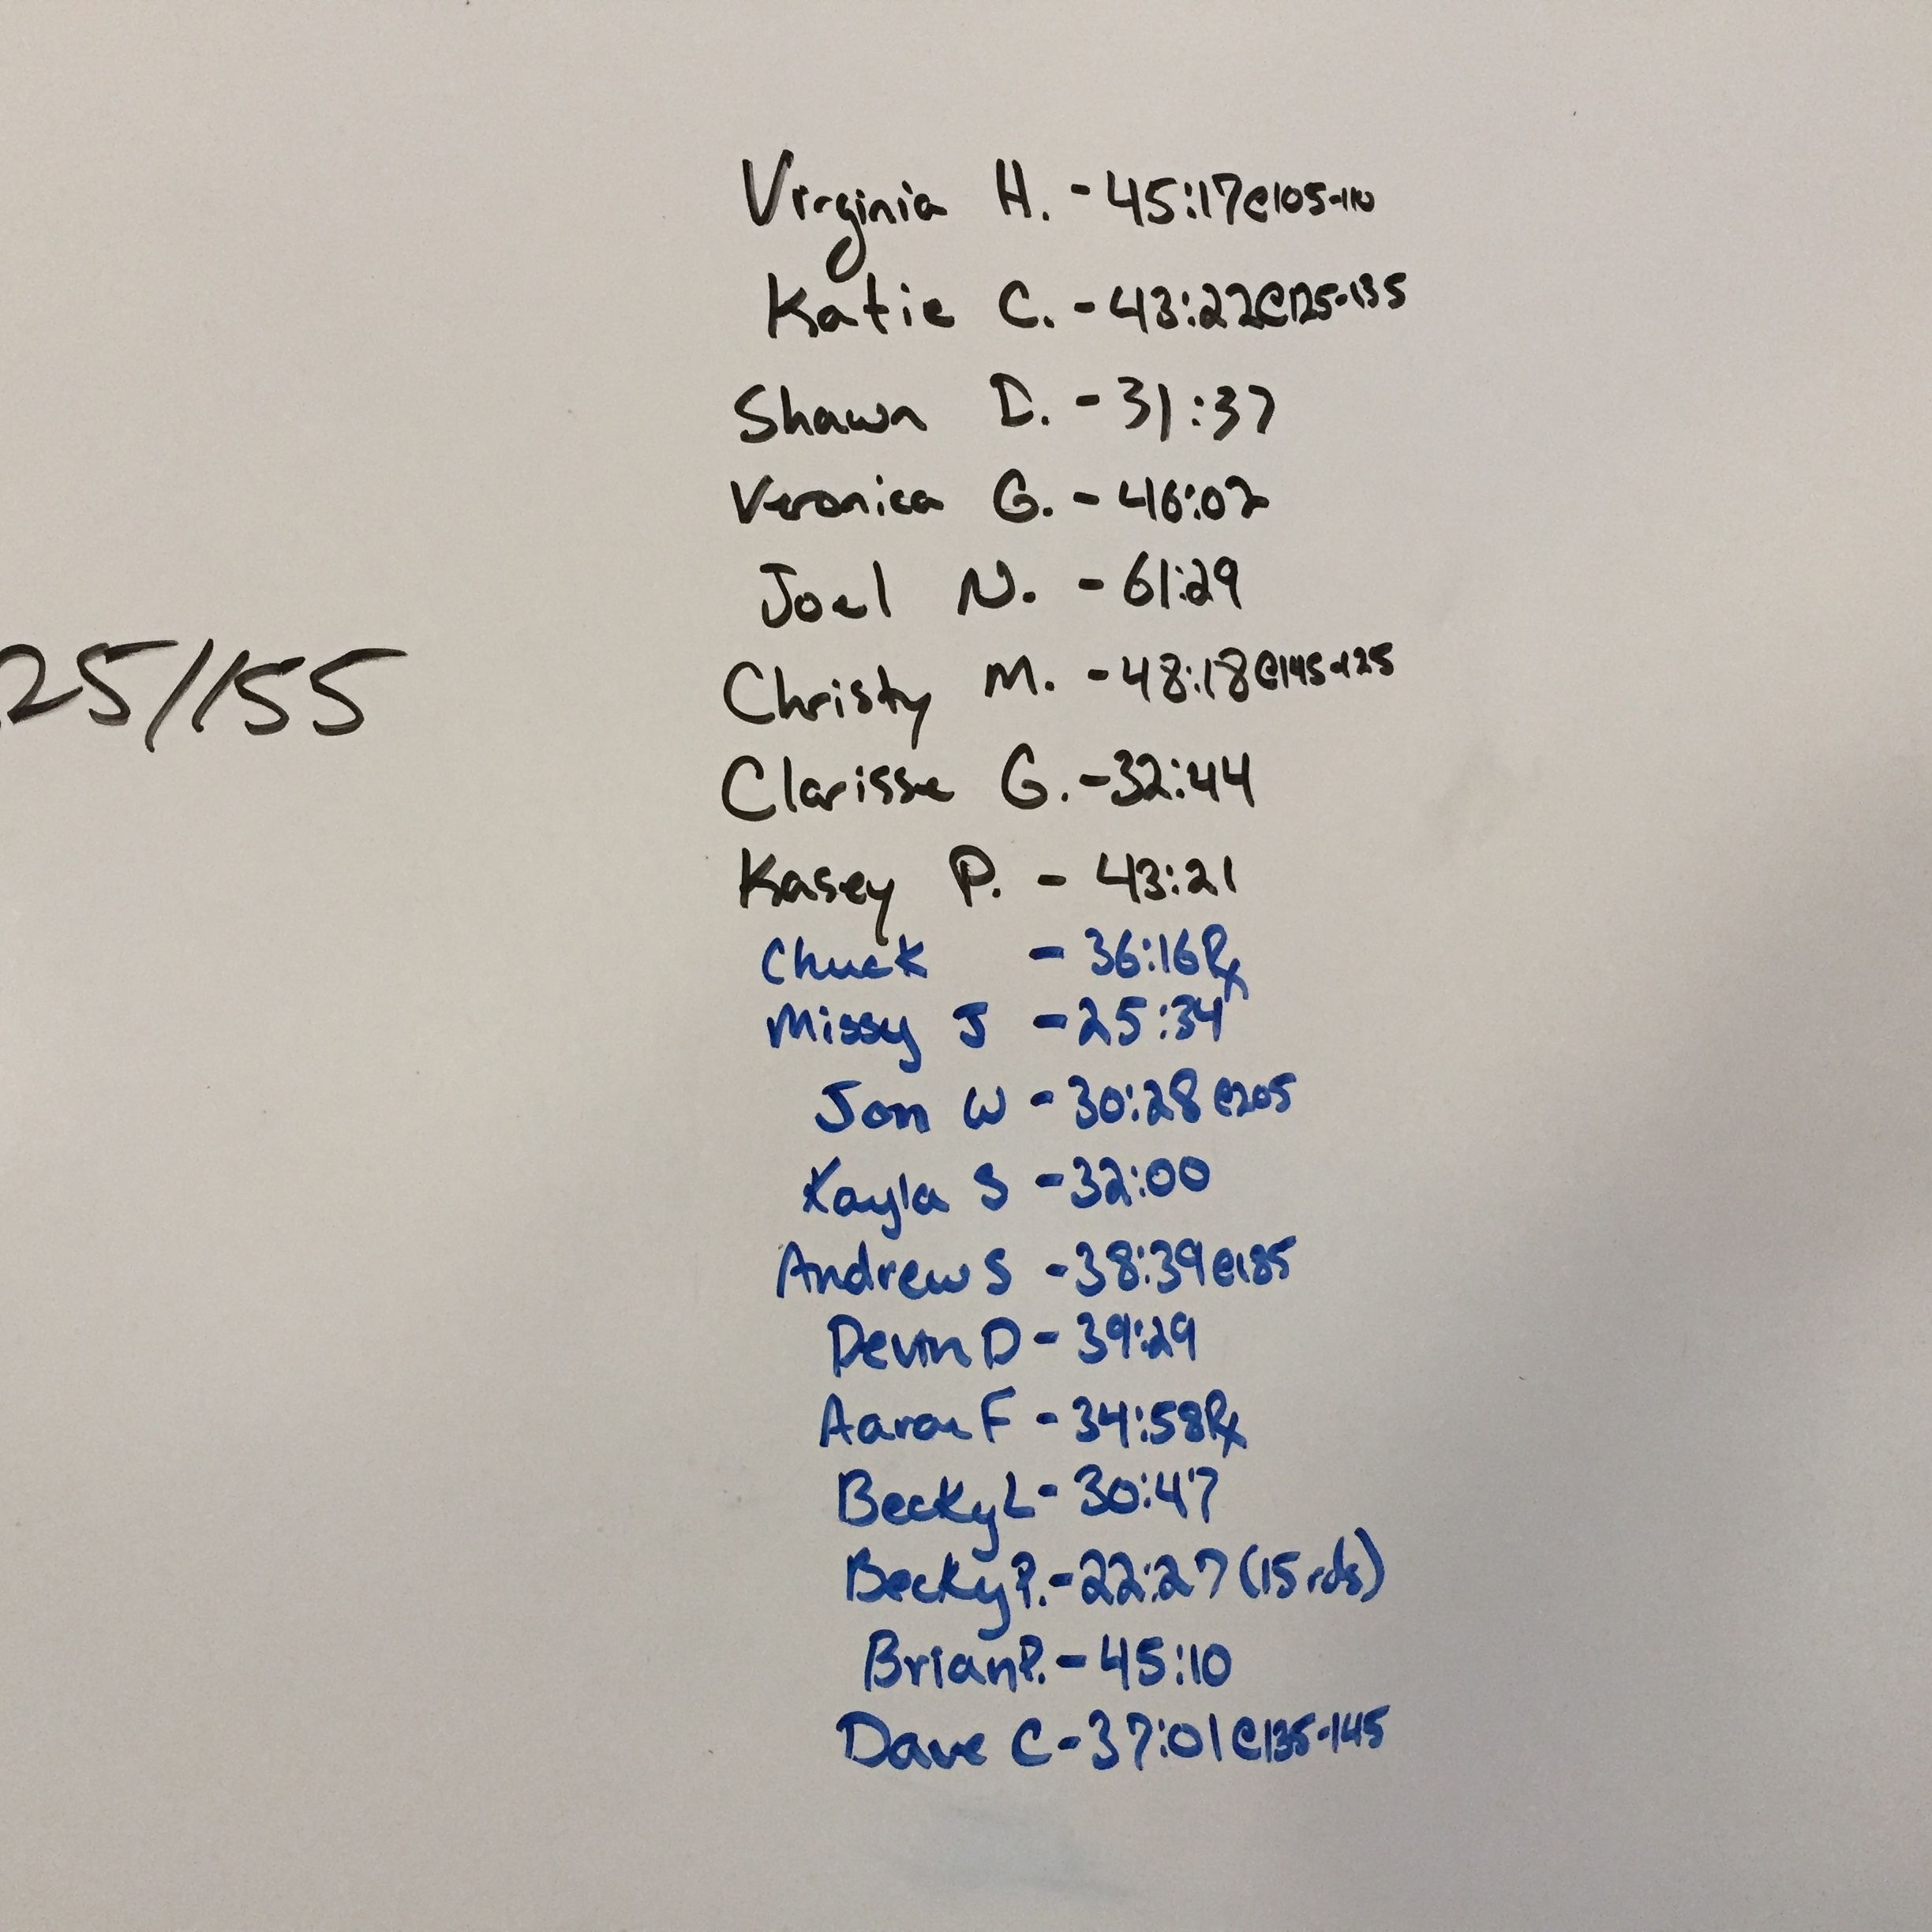 Virginia H. - 45:17@105-110
Katie C. - 43:22@125-135
Shawn D. - 31:37
Veronica G. - 46:02
Joel N. - 61:29
25/155
Christy M. - 48:18@145-125
Clarisse G. - 32:44
Kasey P. - 43:21
Chuck - 36:16 Rx
Missy J - 25:34
Jon W - 30:28 @205
Kayla S - 32:00
Andrew S - 38:39 @185
Devin D - 39:29
Aaron F - 34:58 Rx
Becky L - 30:47
Becky P. - 22:27 (15 rds)
Brian P. - 45:10
Dave C - 37:01 @135-145